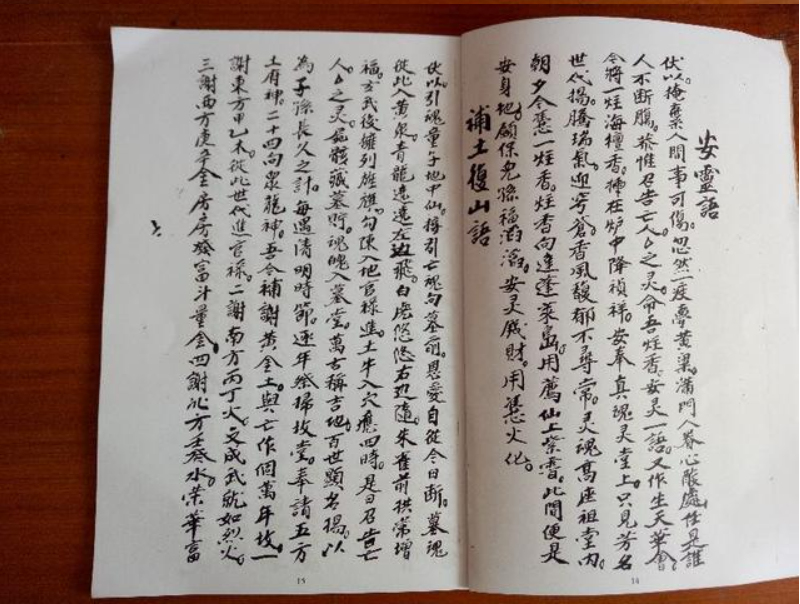 安靈語
伏以。掩棄人間事可傷。忽然一夜夢黃粱。滿門人眷心酸處。任是誰
人不斷腸。恭惟召告亡人厶之灵。命吾炷香。安灵一語。又作生天華會。
今將一炷海檀香。揷在炉中降禎祥。安奉真魂灵堂上。只見芳名
世代揚。騰騰瑞氣迎穹蒼。香風馥郁不尋常。灵魂高座祖堂內。
朝夕令憑一炷香。炷香向達蓬萊島。用薦仙上紫雲。此間便是
安身地。願保兒孫福滔滔。安灵餞財。用憑火化。
補土復山語
伏以。引魂童子地中仙。接引亡魂向墓前。恩愛自從今日斷。墓魂
從此入黃泉。青龍遠遠左边飛。白虎悠悠右边隨。朱雀前拱榮增
福。玄武後擁列旌旗。勾陳入地官祿進。土牛入穴應四時。是日召告亡
人厶之灵。屍骸藏墓貯。魂魄入墓堂。萬古稱吉地。百世顯名揚。以
為子孫長久之計。每遇清明時節。逐年祭掃坟堂。奉請五方
土府神。二十四向眾龍神。吾今補謝黃金土。與亡作個萬年坟。一
謝東方甲乙木。從此世代進官祿。二謝南方丙丁火。文成武就如烈火。
三謝西方庚辛金。房房發富斗量金。四謝北方壬癸水。榮華富
15
14